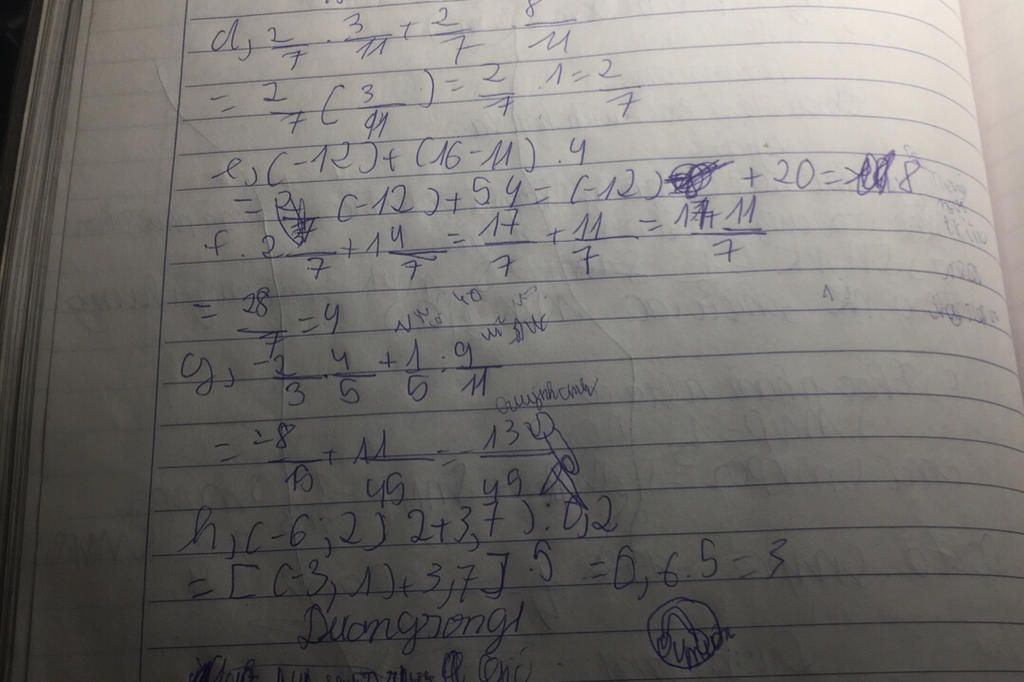 d, 2/7 . 3/11 + 2/7 . 8/11
= 2/7 ( 3/11 ) = 2/7 . 1 = 2/7
e, (-12) + (16-11) . 4
= (-12) + 5 4 = (-12) + 20 = 8
f. 2 /7 + 1 4/7 = 17/7 + 11/7 = 17+11/7
= 28/7 = 4
g, -2/3 . 4/5 + 1/5 : 9/11
= -8/15 + 11/45 = 13/45
h, (-6,2) 2+3,7) : 0,2
= [(-3,1)+3,7] . 5 = 0,6.5 = 3